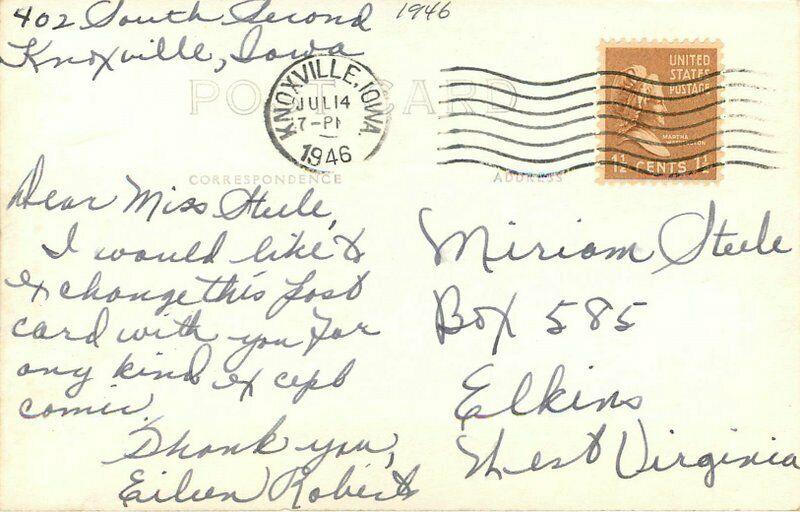 402 South Second
Knoxville, Iowa
1946
POST CARD
KNOXVILLE, IOWA.
JUL 14
7-PM
1946
UNITED
STATES
POSTAGE
MARTHA
WASHINGTON
1½ CENTS 1½
CORRESPONDENCE
ADDRESS
Dear Miss Steele,
I would like to
exchange this post
card with you for
any kind except
comic.
Thank you,
Eileen Roberts
Miriam Steele
Box 585
Elkins
West Virginia